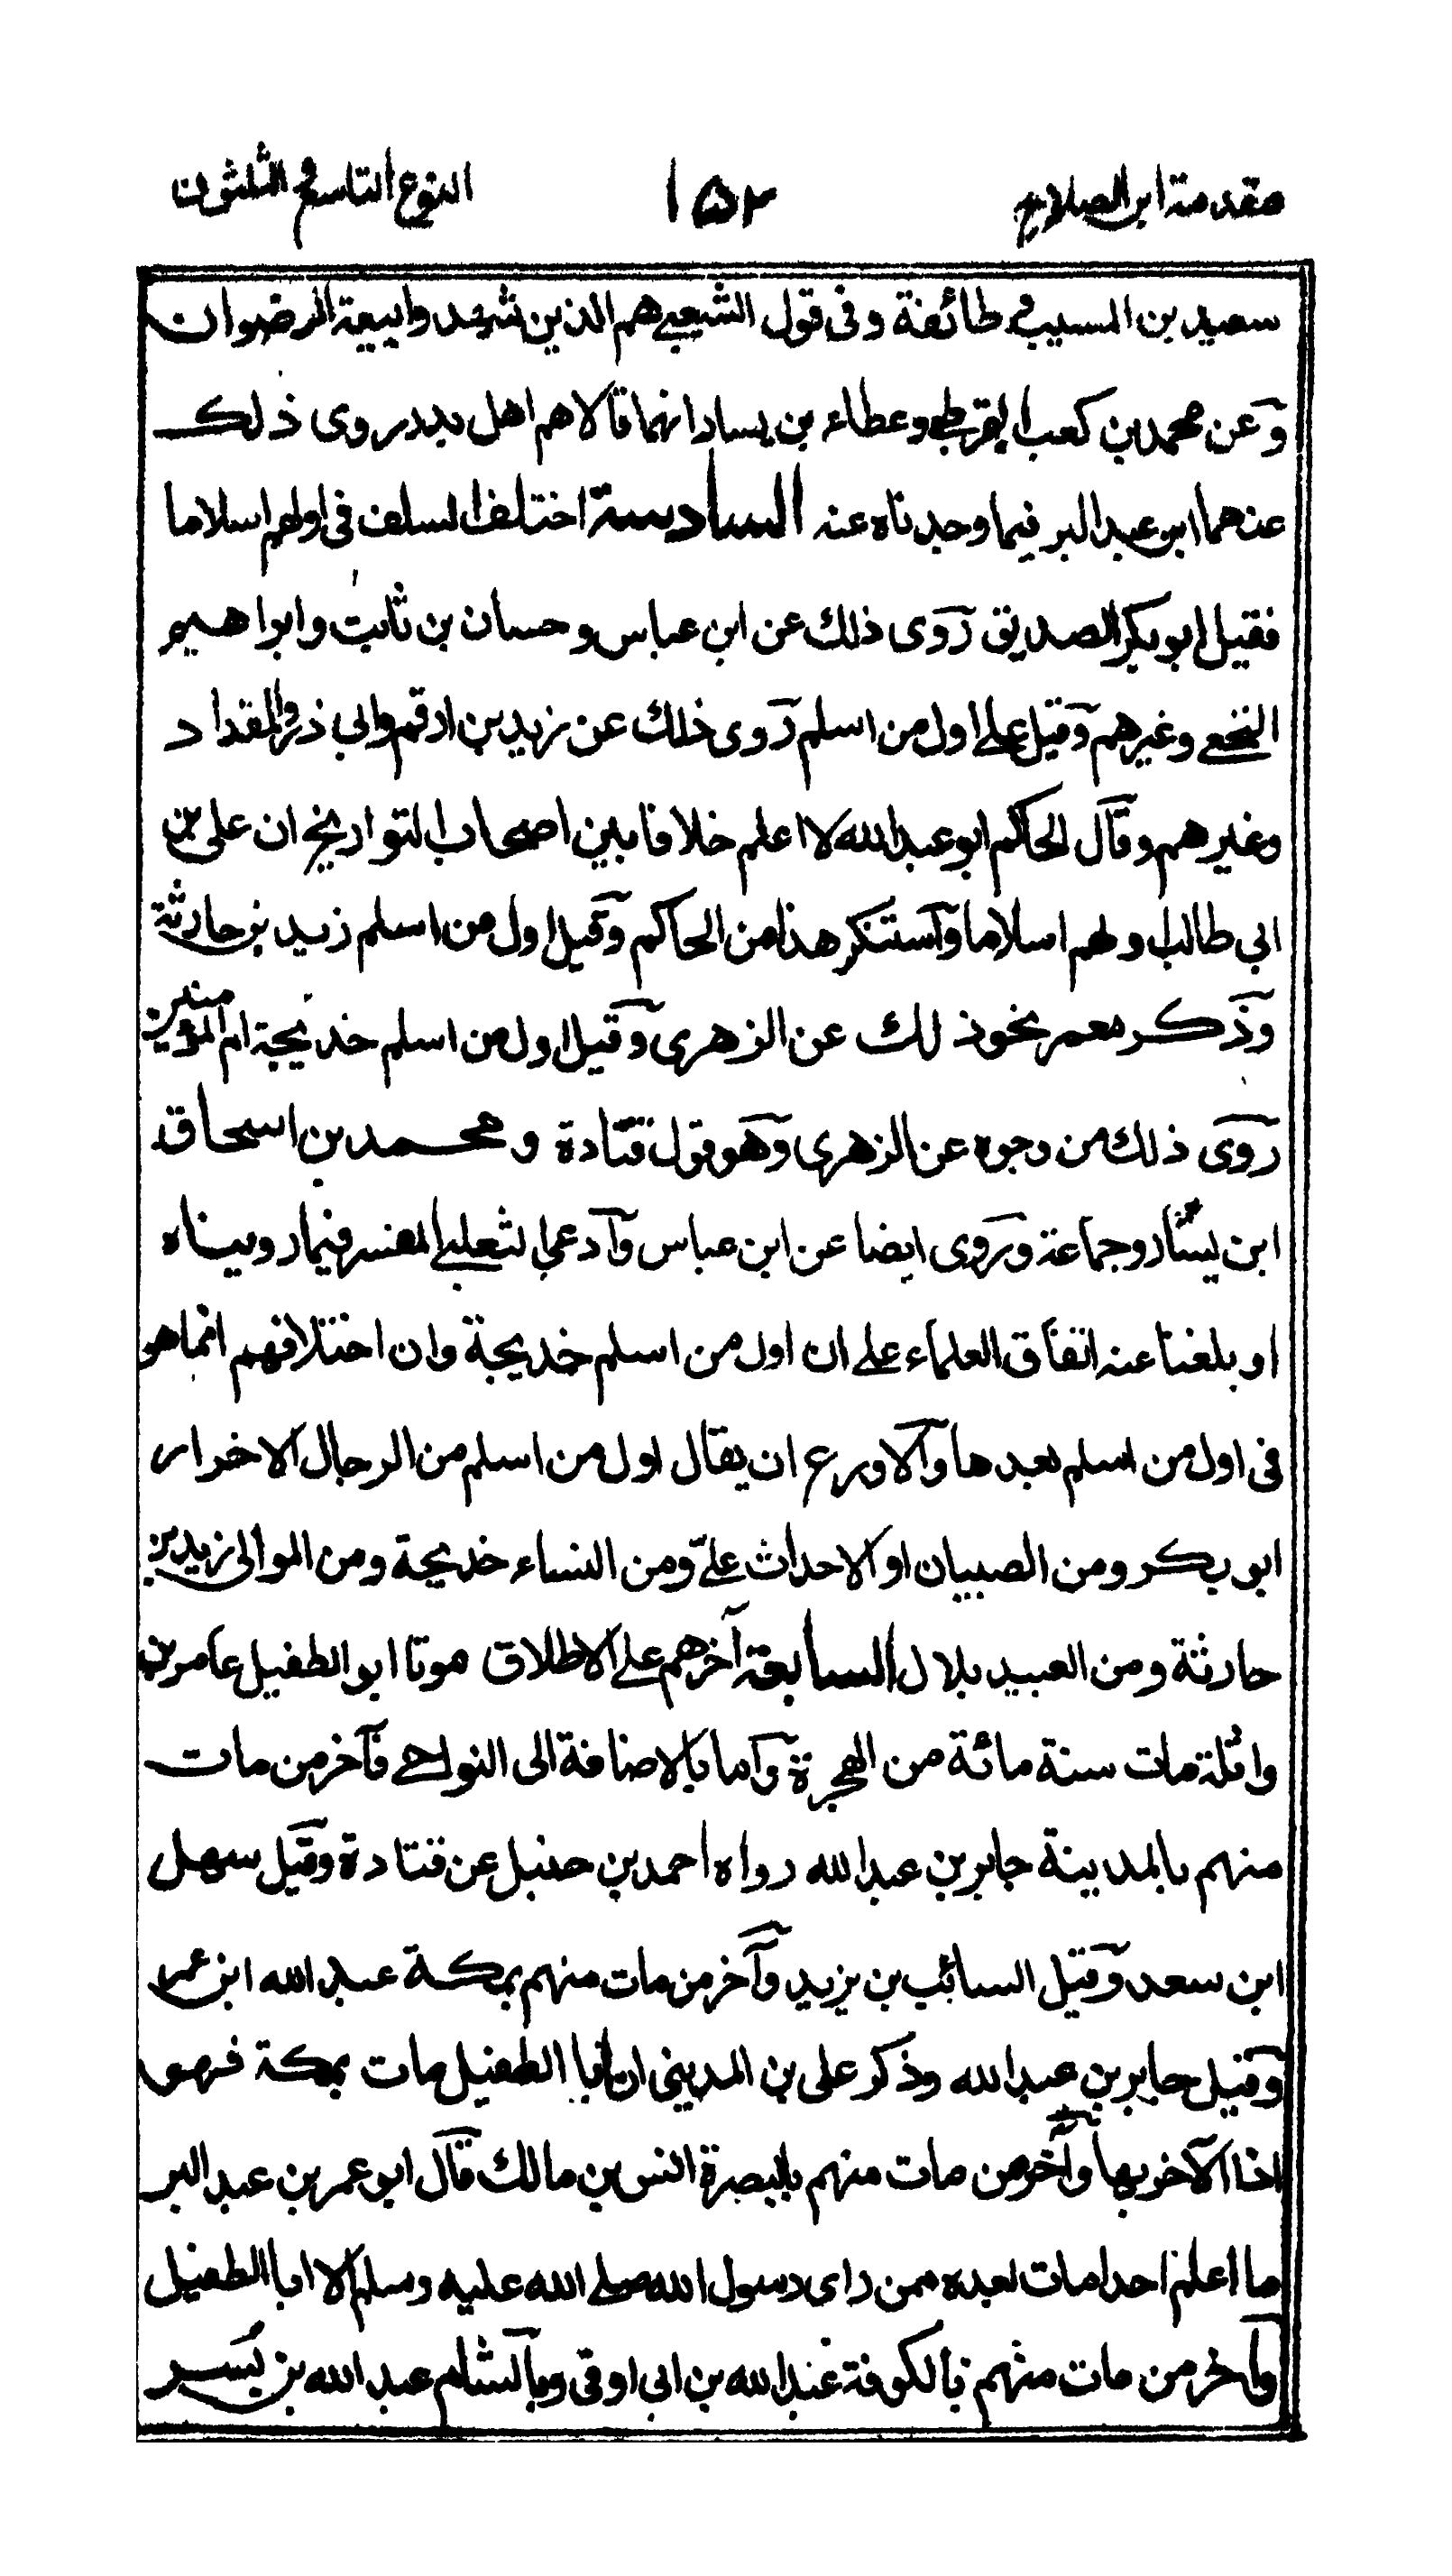 مقدمة ابن الصلاح ١٥٢ النوع التاسع والثلثون
سعيد بن المسيب في طائفة وفى قول الشعبي هم الذين شهدوا بيعة الرضوان
وعن محمد بن كعب القرظي وعطاء بن يسار انهما قالا هم اهل بدر روى ذلك
عنهما ابن عبد البر فيما وجدناه عنه السادسة اختلف السلف فى اولهم اسلاما
فقيل ابو بكر الصديق روى ذلك عن ابن عباس وحسان بن ثابت وابراهيم
النخعي وغيرهم وقيل علي اول من اسلم روى ذلك عن زيد بن ارقم وابي ذر والمقداد
وغيرهم وقال الحاكم ابو عبد الله لا اعلم خلافا بين اصحاب التواريخ ان على بن
ابي طالب اولهم اسلاما واستنكر هذا من الحاكم وقيل اول من اسلم زيد بن حارثة
وذكر معمر نحو ذلك عن الزهرى وقيل اول من اسلم خديجة ام المؤمنين
روى ذلك من وجوه عن الزهرى وهو قول قتادة ومحمد بن اسحاق
ابن يسار وجماعة وروى ايضا عن ابن عباس وادعى الثعلبي المفسر فيما رويناه
او بلغنا عنه اتفاق العلماء على ان اول من اسلم خديجة وان اختلافهم انما هو
فى اول من اسلم بعدها والاورع ان يقال اول من اسلم من الرجال الاحرار
ابو بكر ومن الصبيان او الاحداث علي ومن النساء خديجة ومن الموالى زيد بن
حارثة ومن العبيد بلال السابعة آخرهم على الاطلاق موتا ابو الطفيل عامر بن
واثلة مات سنة مائة من الهجرة واما بالاضافة الى النواحي فآخر من مات
منهم بالمدينة جابر بن عبد الله رواه احمد بن حنبل عن قتادة وقيل سهل
ابن سعد وقيل السائب بن يزيد وآخر من مات منهم بمكة عبد الله ابن عمر
وقيل جابر بن عبد الله وذكر على بن المدينى ان أبا الطفيل مات بمكة فهو
اذا الآخر بها وآخر من مات منهم بالبصرة انس بن مالك قال ابو عمر بن عبد البر
ما اعلم احدا مات بعده ممن راى رسول الله صلى الله عليه وسلم الا ابا الطفيل
وآخر من مات منهم بالكوفة عبد الله بن ابى اوفى وبالشام عبد الله بن بسر